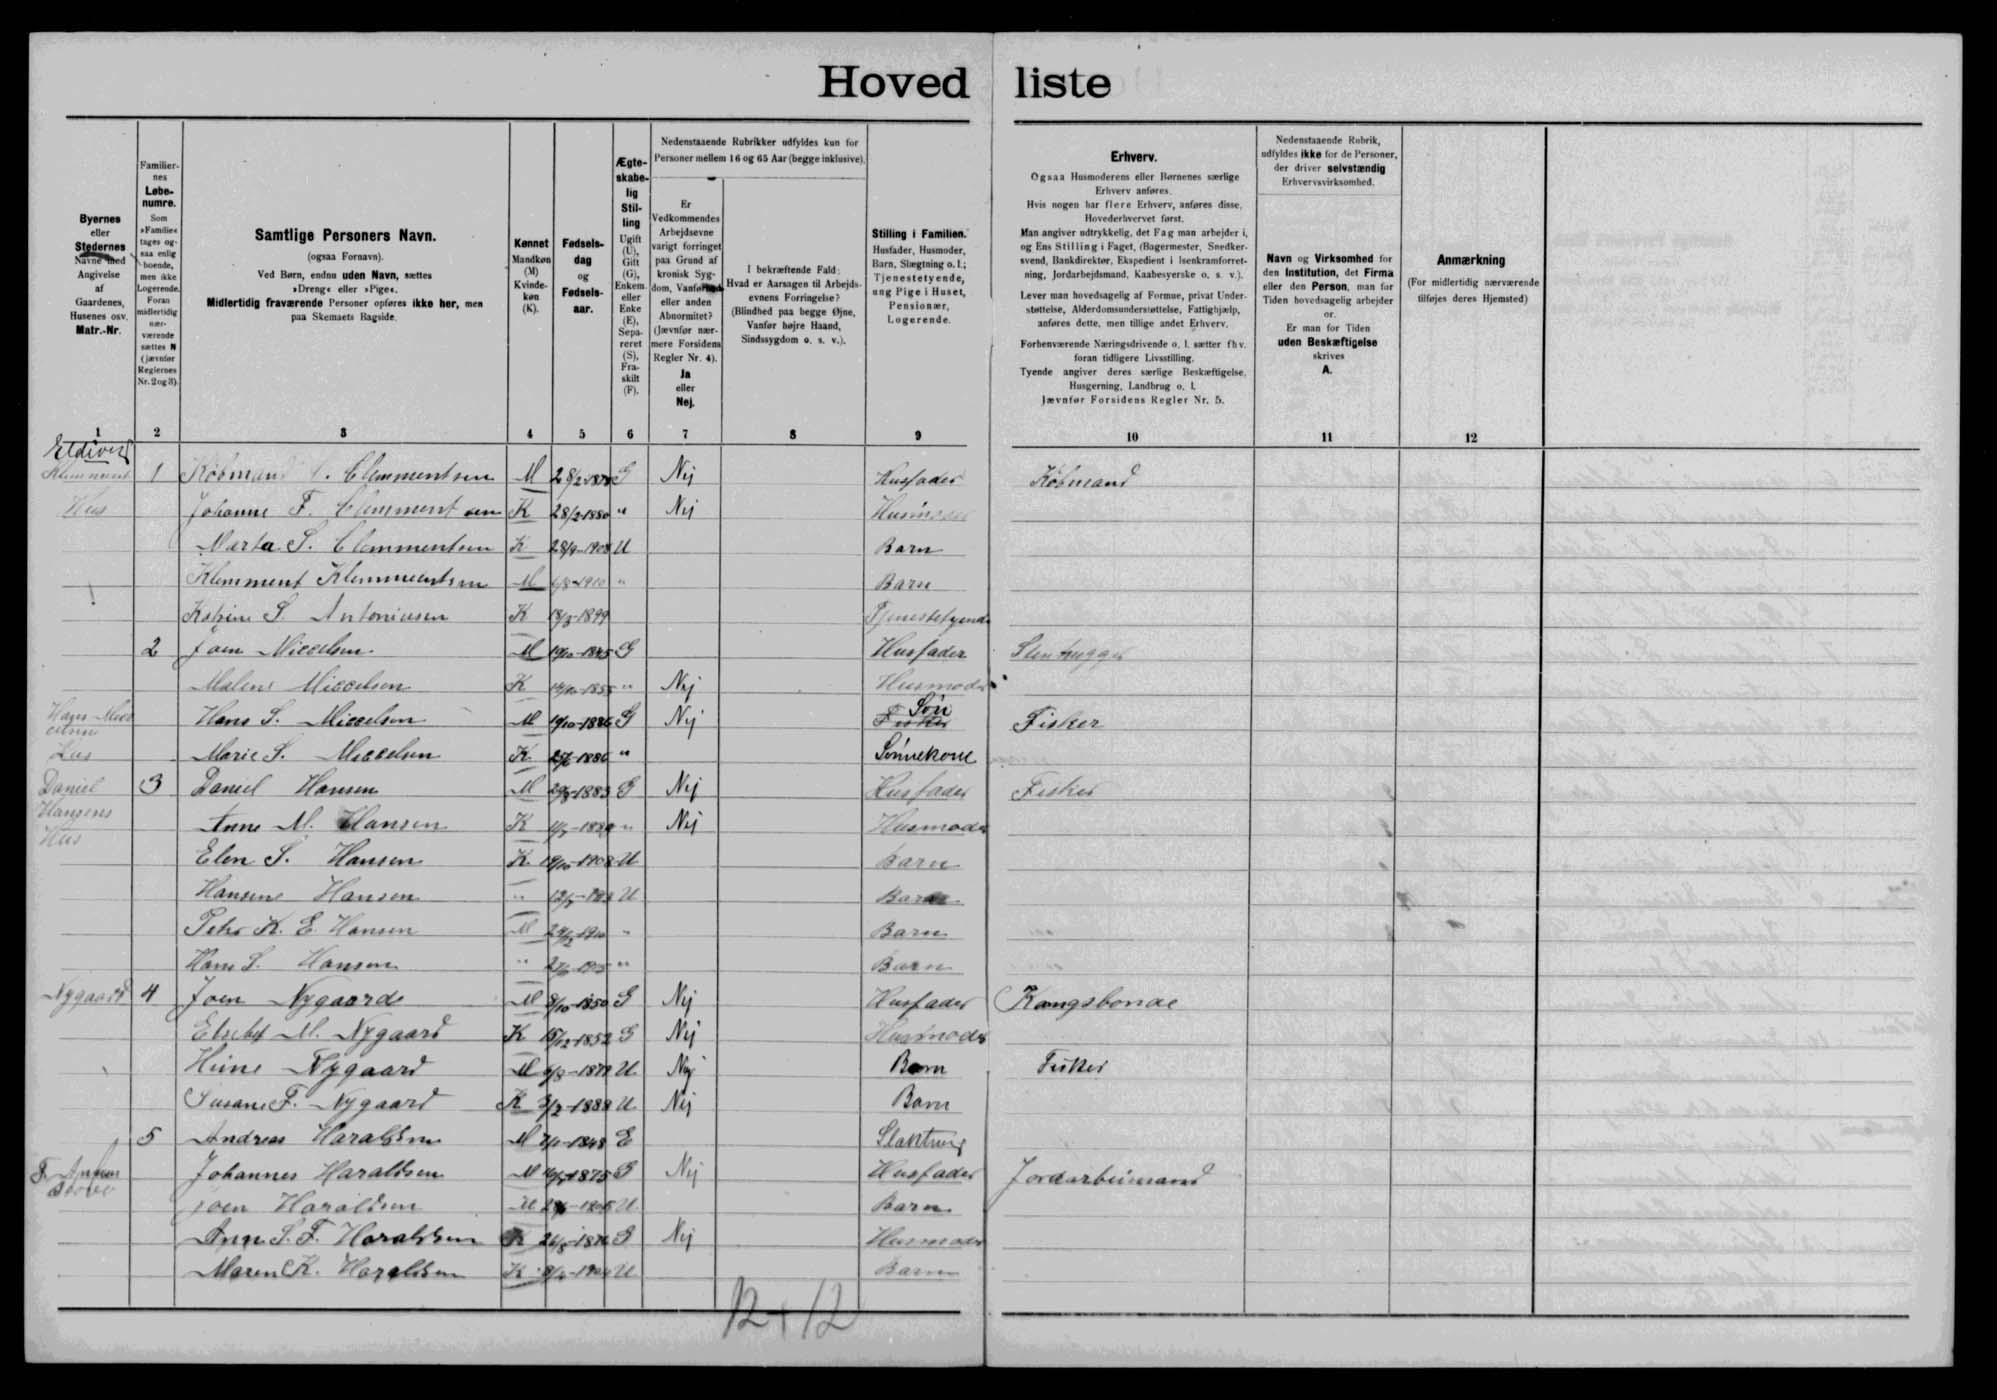 Hoved liste
Byernes
eller
Stedernes
Navne med
Angivelse
af
Gaardenes,
Husenes osv.
Matr.-Nr.
Familier-
nes
Løbe-
numre.
Som
»Familie«
tages og-
saa enlig
boende,
men ikke
Logerende.
Foran
midlertidig
nær-
værende
sættes N
(jævnfør
Reglernes
Nr. 2 og 3).
Samtlige Personers Navn.
(ogsaa Fornavn).
Ved Børn, endnu uden Navn, sættes
»Dreng« eller »Pige«.
Midlertidig fraværende Personer opføres ikke her, men
paa Skemaets Bagside.
Kønnet
Mandkøn
(M)
Kvinde-
køn
(K).
Fødsels-
dag
og
Fødsels-
aar.
Ægte-
skabe-
lig
Stil-
ling
Ugift
(U),
Gift
(G),
Enkem.
eller
Enke
(E),
Sepa-
reret
(S),
Fra-
skilt
(F).
Nedenstaaende Rubrikker udfyldes kun for
Personer mellem 16 og 65 Aar (begge inklusive).
Er
Vedkommendes
Arbejdsevne
varigt forringet
paa Grund af
kronisk Syg-
dom, Vanførhed
eller anden
Abnormitet?
(Jævnfør nær-
mere Forsidens
Regler Nr. 4).
Ja
eller
Nej.
I bekræftende Fald:
Hvad er Aarsagen til Arbejds-
evnens Forringelse?
(Blindhed paa begge Øjne,
Vanfør højre Haand,
Sindssygdom o. s. v.).
Stilling i Familien.
Husfader, Husmoder,
Barn, Slægtning o. l.;
Tjenestetyende,
ung Pige i Huset,
Pensionær,
Logerende.
Erhverv.
Ogsaa Husmoderens eller Børnenes særlige
Erhverv anføres.
Hvis nogen har flere Erhverv, anføres disse,
Hovederhvervet først.
Man angiver udtrykkelig, det Fag man arbejder i,
og Ens Stilling i Faget, (Bagermester, Snedker-
svend, Bankdirektør, Ekspedient i Isenkramforret-
ning, Jordarbejdsmand, Kaabesyerske o. s. v.).
Lever man hovedsagelig af Formue, privat Under-
støttelse, Alderdomsunderstøttelse, Fattighjælp,
anføres dette, men tillige andet Erhverv.
Forhenværende Næringsdrivende o. l. sætter fhv.
foran tidligere Livsstilling.
Tyende angiver deres særlige Beskæftigelse,
Husgerning, Landbrug o. l.
Jævnfør Forsidens Regler Nr. 5.
Nedenstaaende Rubrik,
udfyldes ikke for de Personer,
der driver selvstændig
Erhvervsvirksomhed.
Navn og Virksomhed for
den Institution, det Firma
eller den Person, man for
Tiden hovedsagelig arbejder
for.
Er man for Tiden
uden Beskæftigelse
skrives
A.
Anmærkning
(For midlertidig nærværende
tilføjes deres Hjemsted)
1 2 3 4 5 6 7 8 9 10 11 12
1 Købmand Clemmentsen M G Nej Husfader Købmand
Hus Johanne F. Clemmentsen K 28/2-1880 " Nej Husmoder
Marta S. Clemmentsen K 1908 U Barn
Klemment Klemmentsen M 1910 " Barn
Katrine S. Antoniusen K 1899 Tjenestetyende
2 Joen Miccelsen M G Husfader Stenhugger
Malene Miccelsen K " Nej Husmoder
Hans S. Miccelsen M 1886 G Nej Fisker Søn Fisker
Hus Marie S. Miccelsen K 1886 " Sønnekone
Daniel 3 Daniel Hansen M 1883 G Nej Husfader Fisker
Hansens
Hus Anne M. Hansen K " Nej Husmoder
Elen S. Hansen K 1908 U Barn
Hansine Hansen " U Barn
Peter K. E. Hansen M 1910 " Barn
Hans S. Hansen " " Barn
Nygaard 4 Joen Nygaard M 8/10-1850 G Nej Husfader Kongsbonde
Elsebet M. Nygaard K 1852 G Nej Husmoder
Heine Nygaard M U Nej Barn Fisker
Susane F. Nygaard K 1888 U Nej Barn
5 Andreas Haraldsen M 1848 E Slæktning
Johannes Haraldsen M 1875 G Nej Husfader
Joen Haraldsen M U Barn
Anne S. F. Haraldsen K G Nej Husmoder
Maren K. Haraldsen K U Barn
12+12